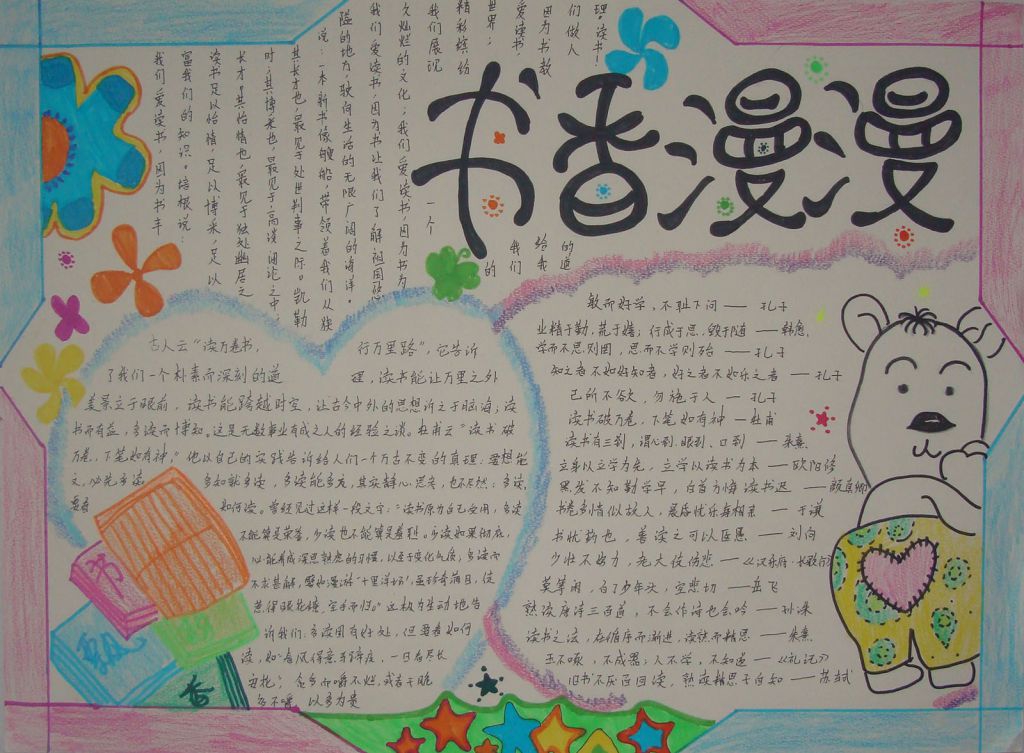 书香漫漫
我们爱读书，因为书丰
富我们的知识。培根说：
读书足以怡情，足以博采，足以
长才。其怡情也，最见于独处幽居之
时；其博采也，最见于高谈阔论之中；
其长才也，最见于处世判事之际。凯勒
说：一本新书像一艘船，带领着我们从狭
隘的地方，驶向生活的无限广阔的海洋。
我们爱读书，因为书让我们了解祖国悠
久灿烂的文化；我们爱读书，因为书为
我们展现 一个
精彩缤纷 的
世界； 我们
爱读书，
因为书教 给我
们做人 的道
理。读书！
古人云“读万卷书， 行万里路”，它告诉
了我们一个朴素而深刻的道 理，读书能让万里之外
美景立于眼前，读书能跨越时空，让古今中外的思想诉之于脑海；读
书而有益，多读而博知。这是无数事业有成之人的经验之谈。杜甫云“读书破
万卷，下笔如有神，”他以自己的实践告诉给人们一个万古不变的真理：要想能
文，必先多读 多知就多读，多读能多克，其实静心思来，也不尽然：多读，
要看 如何读。曾经见过这样一段文字：“读书原为自己受用，多读
不能算是荣誉，少读也不能算是羞耻。少读如果彻底，
必能养成深思熟虑的习惯，以至于变化气质，多读而
不求甚解，譬如漫游“十里洋场”，虽珍奇满目，徒
惹得眼花缭，空手而归。”这极为生动地告
诉我们：多读固有好处，但要看如何
读，如“春风得意马蹄疾，一日看尽长
安花” 贪多而嚼不烂，或者干脆
多不嚼 以多为贵
敏而好学，不耻下问 —— 孔子
业精于勤，荒于嬉；行成于思，毁于随 ——韩愈
学而不思则罔，思而不学则殆 ——孔子
知之者不如好知者，好之者不如乐之者 —— 孔子
己所不欲，勿施于人 — 孔子
读书破万卷，下笔如有神 —杜甫
读书有三到，谓心到、眼到、口到 —— 朱熹
立身以立学为先，立学以读书为本 ——欧阳修
黑发不知勤学早，白首方悔读书迟 ——颜真卿
书卷多情似故人，晨昏忧乐每相亲 —— 于谦
书犹药也，善读之可以医愚 —— 刘向
少壮不努力，老大徒伤悲 —— 《汉乐府·长歌行》
莫等闲，白了少年头，空悲切 ——岳飞
熟读唐诗三百首，不会作诗也会吟 ——孙洙
读书之法，在循序而渐进，读熟而精思 —— 朱熹
玉不琢，不成器；人不学，不知道 ——《礼记》
旧书不厌百回读，熟读精思子自知 —— 苏轼
书
香